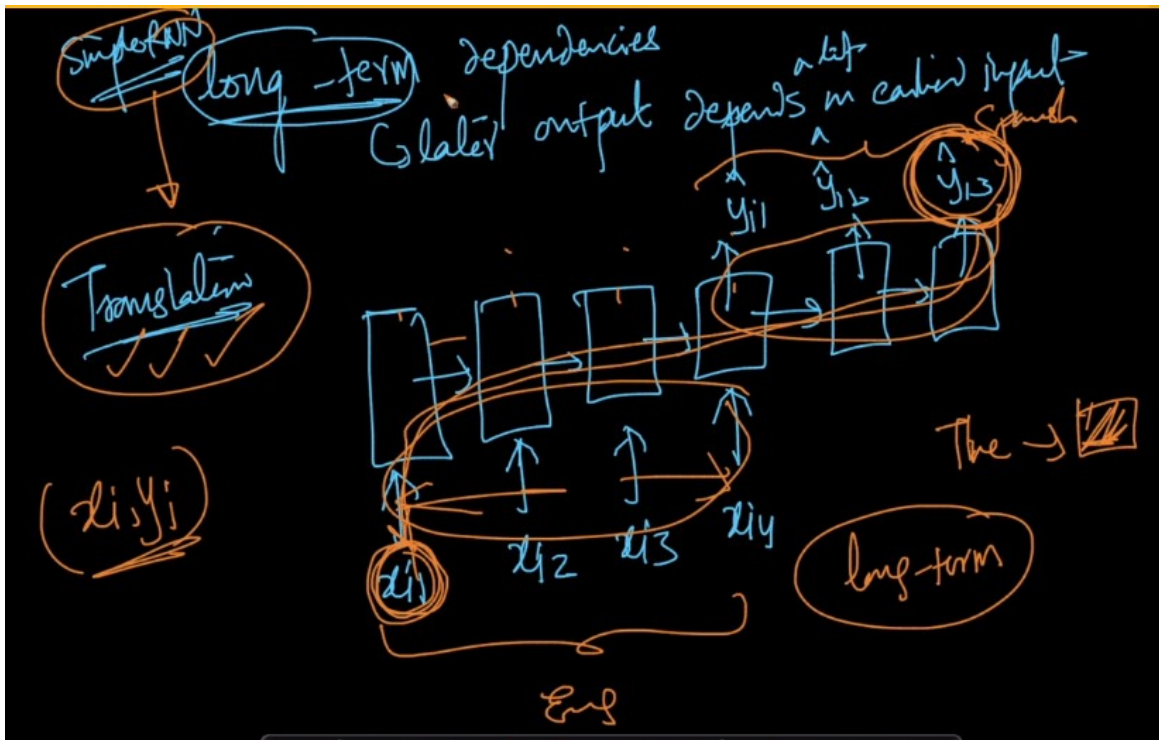 SimpleRNN
long-term dependencies
↳ later output depends on a lot earlier input
Spanish
ŷi1 ŷi2 ŷi3
Translation
The →
(xi, yi)
xi1 xi2 xi3 xi4
long-term
Eng